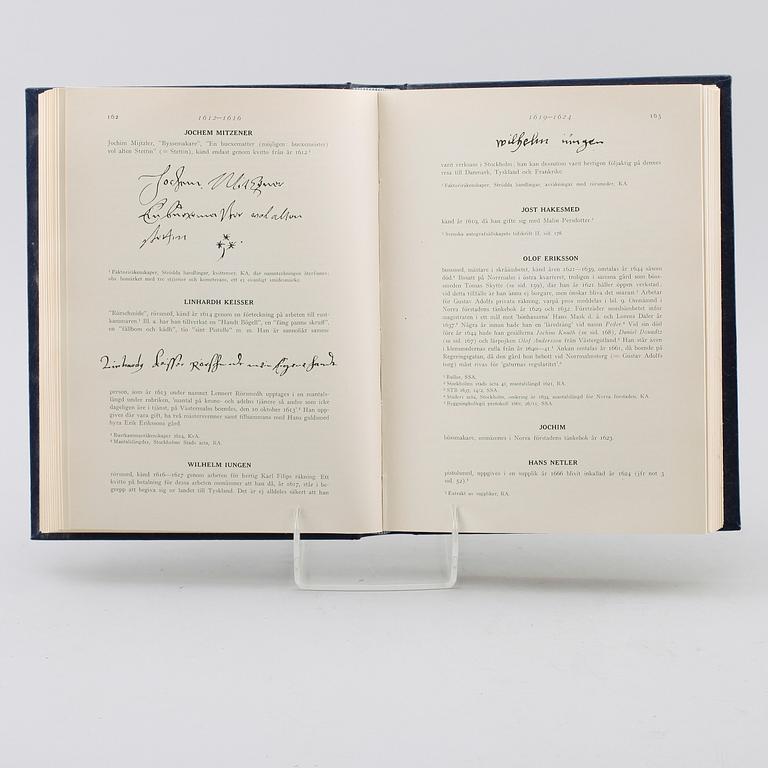 162
1612—1616
JOCHEM MITZENER
Jochim Mijtzler, "Byssemakare", "En bucxematter (möjligen: bucxemeister)
vol alten Stettin" (= Stettin), känd endast genom kvitto från år 1612.¹
Jochem Mitzener
stettin
LINHARDH KEISSER
"Rörschmide", rörsmed, känd år 1614 genom en förteckning på arbeten till rust-
kammaren.¹ Bl. a. har han tillverkat en "Handt Bögell", en "fäng panne skruff",
en "fällbom och kädh", tio "sint Pistolle" m. m. Han är sannolikt samme
person, som år 1613 under namnet Lennert Rörsmedh upptages i en mantals-
längd under rubriken, 'mantal på krono- och adelns tjänere så andre som icke
dageligen äre i tjänst, på Västermalm boendes, den 10 oktober 1613'.² Han upp-
gives där vara gift, ha två mästersvenner samt tillsammans med Hans guldsmed
hyra Erik Erikssons gård.
¹ Rustkammarräkenskaper 1614, KvA.
² Mantalslängder, Stockholms Stads acta, RA.
WILHELM IUNGEN
rörsmed, känd 1616—1617 genom arbeten för hertig Karl Filips räkning. Ett
kvitto på betalning för dessa arbeten omnämner att han då, år 1617, står i be-
grepp att begiva sig ur landet till Tyskland. Det är ej alldeles säkert att han
1619—1624
163
wilhelm iungen
varit verksam i Stockholm; han kan dessutom varit hertigen följaktig på dennes
resa till Danmark, Tyskland och Frankrike.
¹ Faktoriräkenskaper, Strödda handlingar, avräkningar med rörsmeder, KA.
JOST HAKESMED
känd år 1619, då han gifte sig med Malin Persdotter.¹
¹ Svenska autografsällskapets tidskrift II, sid. 178.
OLOF ERIKSSON
bössmed, mästare i skråämbetet, känd även 1621—1639, omtalas år 1644 såsom
död.¹ Bosatt på Norrmalm i östra kvarteret, troligen i samma gård som böss-
smeden Tomas Skytte (se sid. 159), där han år 1621 håller öppen verkstad;
vid detta tillfälle är han ännu ej borgare, men önskar bliva det snarast.² Arbetar
för Gustav Adolfs privata räkning, varpå prov meddelas i bil. 9. Omnämnd i
Norra förstadens tänkebok år 1629 och 1632. Företräder bössmedsämbetet inför
magistraten i ett mål mot 'bönhasarna' Hans Mask d. ä. och Lorens Daler år
1637.³ Några år innan hade han en 'läredräng' vid namn Peder.⁴ Vid sin död
(före år 1644) hade han gesällerna Jochim Knuth (se sid. 168), Daniel Donudtz
(se sid. 167) och lärpojken Olof Andersson från Västergötland.⁵ Han står även
i klensmedernas rulla från år 1640—41.⁵ Änkan omtalas år 1661, då boende på
Regeringsgatan, då den gård hon bebott vid Norrmalmstorg (= Gustav Adolfs
torg) måst rivas för 'gaturnes regularitet'.⁶
¹ Rullor, SSA.
² Stockholms stads acta 41, mantalslängd 1621, RA.
³ STB 1637, 14/2, SSA.
⁴ Städers acta, Stockholm, omkring år 1635, mantalslängd för Norra förstaden, KA.
⁵ Byggningskollegii protokoll 1661, 26/11, SSA.
JOCHIM
bössmakare, omnämnes i Norra förstadens tänkebok år 1623.
HANS NETLER
pistolsmed, uppgives i en supplik år 1666 blivit inkallad år 1624 (jfr not 3
sid. 52).¹
¹ Extrakt av suppliker, RA.